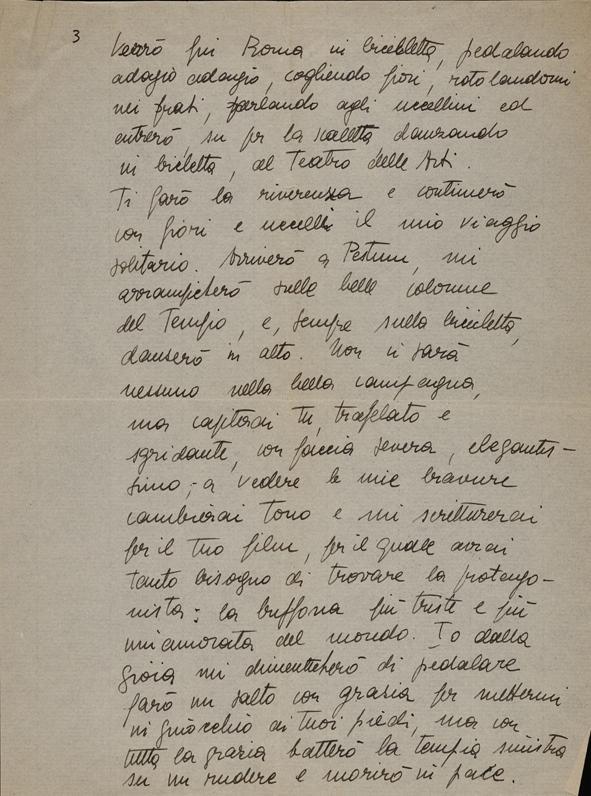 3
Verrò fin Roma in bicicletta, pedalando
adagio adagio, cogliendo fiori, rotolandomi
nei prati, parlando agli uccellini ed
entrerò, su per la scaletta danzando
in bicicletta, al Teatro delle Arti.
Ti farò la riverenza e continuerò
con fiori e uccelli il mio viaggio
solitario. Arriverò a Pestum, mi
arrampicherò sulle belle colonne
del Tempio, e, sempre sulla bicicletta,
danserò in alto. Non ci sarà
nessuno nella bella campagna,
ma capiterai tu, trafelato e
sgridante, con faccia severa, elegantis-
simo; a vedere le mie bravure
cambierai tono e mi scritturerai
per il tuo film, per il quale avrai
tanto bisogno di trovare la protago-
nista: la buffona più triste e più
innamorata del mondo. Io dalla
gioia mi dimenticherò di pedalare
farò un salto con grazia per mettermi
in ginocchio ai tuoi piedi, ma con
tutta la grazia batterò la tempia sinistra
su un rudere e morirò in pace.